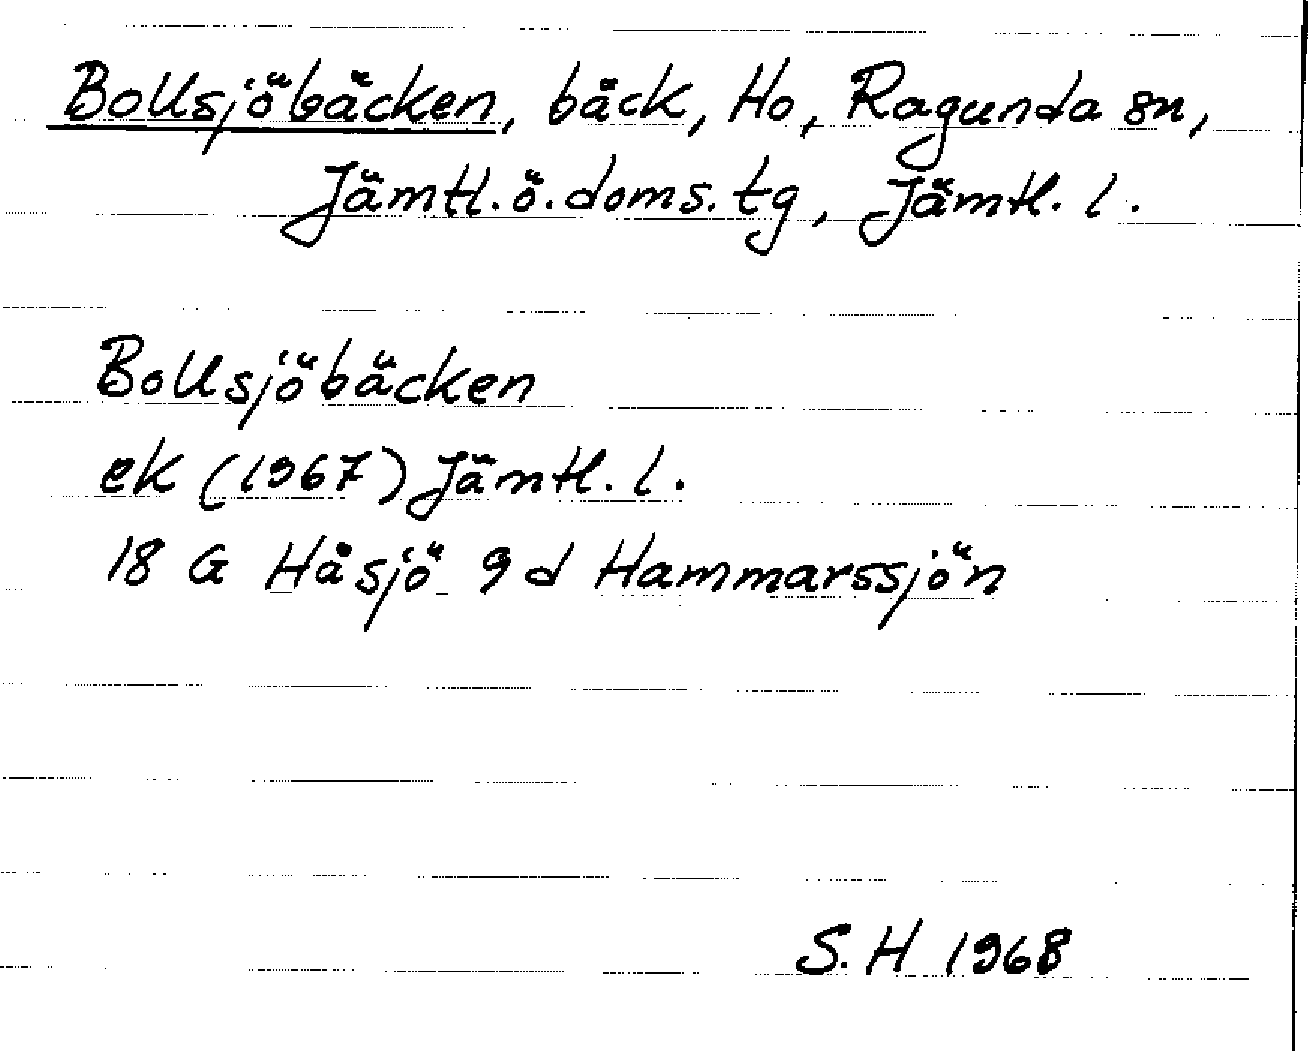 Bollsjöbäcken, bäck, Ho, Ragunda sn,
Jämtl. ö. doms. tg, Jämtl. l.
Bollsjöbäcken
ek (1967) Jämtl. l.
18 G Håsjö 9 d Hammarssjön
S. H 1968